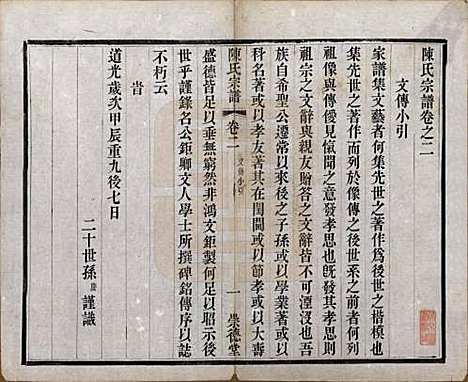 陳氏宗譜卷之二
文傳小引
家譜集文藝者何集先世之著作為後世之楷模也
集先世之著作而列於像傳之後世系之前者何列
祖像與傳優見愾聞之意發孝思也旣發其孝思則
祖宗之文辭與親友贈答之文辭皆不可湮沒也吾
族自希聖公遷常以來後之子孫或以學業著或以
科名著或以孝友著其在閨閫或以節孝或以大壽
陳氏宗譜 卷二 文傳小引 一 崇德堂
盛德皆足以垂無窮然非鴻文鉅製何足以昭示後
世乎謹錄名公鉅卿文人學士所撰碑銘傳序以誌
不朽云
旹
道光歲次甲辰重九後七日
二十世孫 謹識